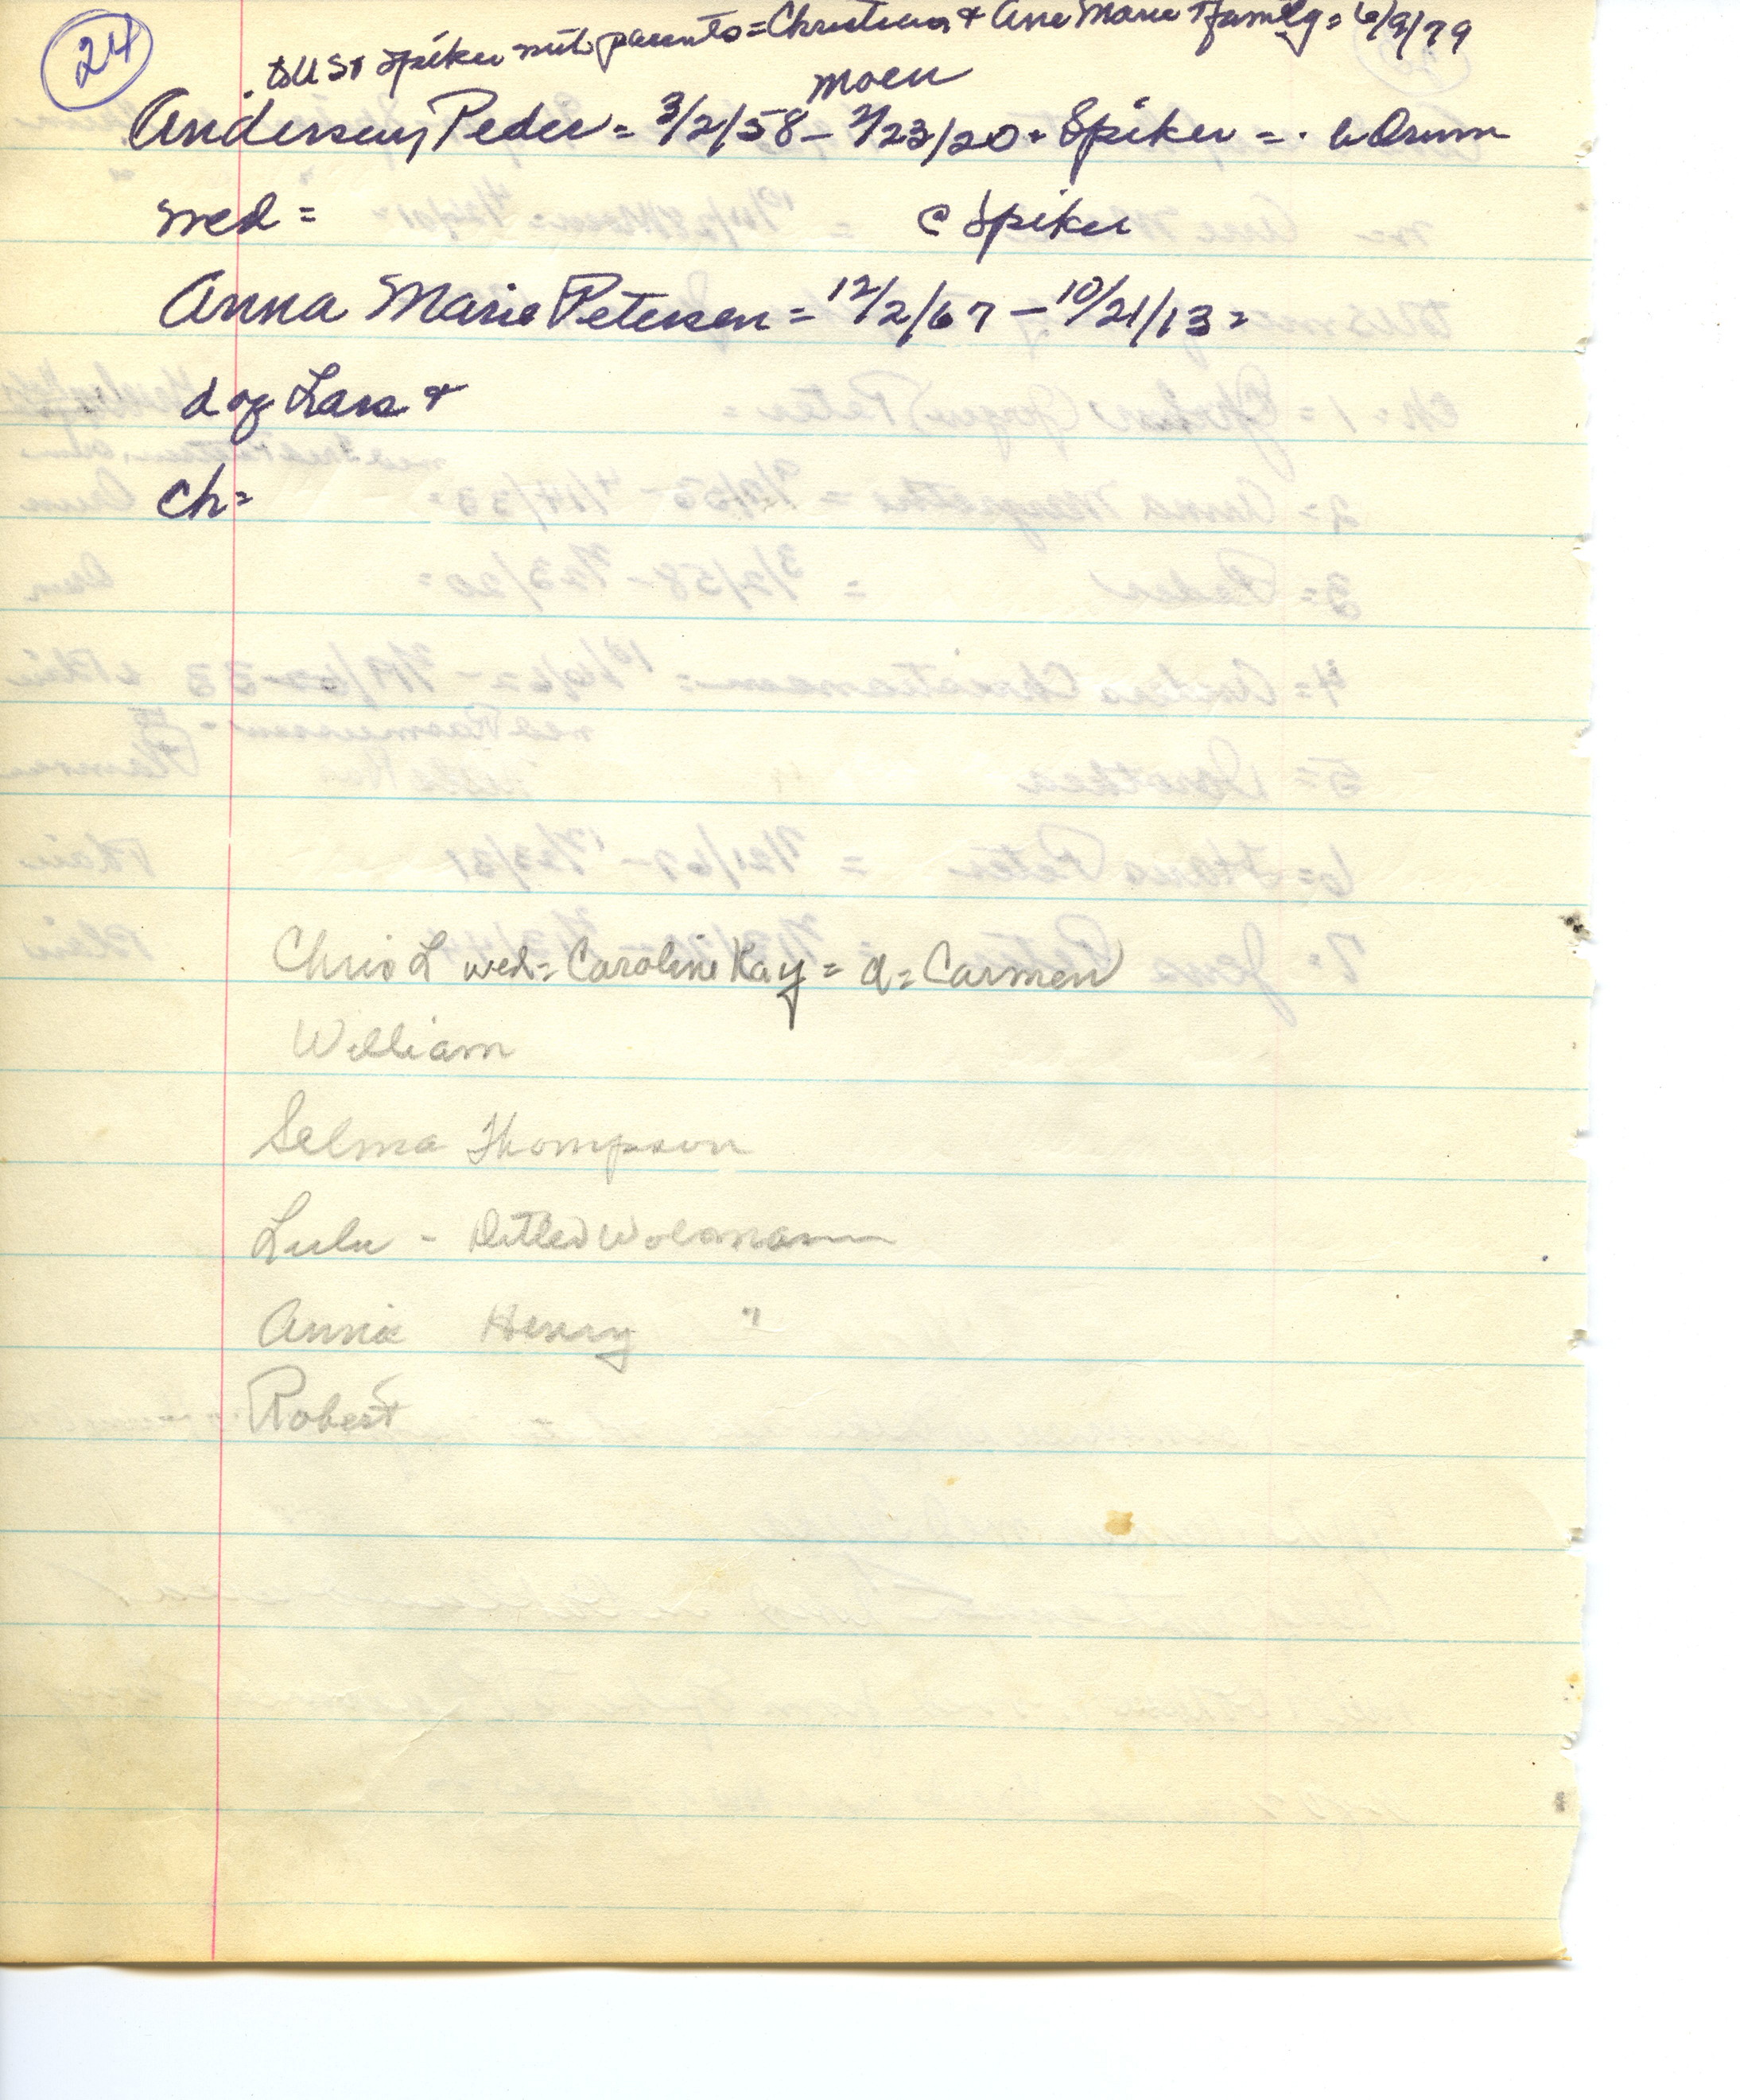 24
to US & Spiker with parents = Christian & Ane Marie & family = 6/9/79
Moen
Andersen, Peder = 3/2/58 - 2/23/20 + Spiker = . b Orum
wed = @ Spiker
Anna Marie Petersen = 12/2/67 - 10/21/13 =
d of Lars &
ch =
Chris L wed = Caroline Kay = a = Carmen
William
Selma Thompson
Lulu - Detlev
Annie Henry "
Robert